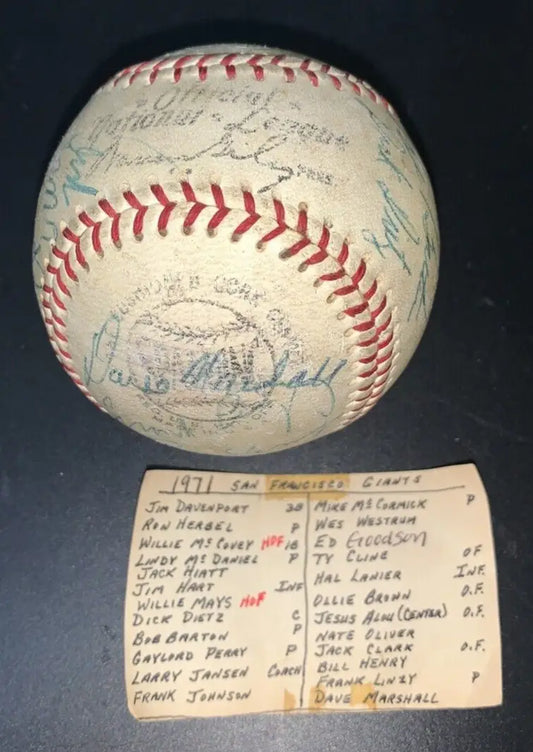 Official
National League
Dave Marshall
1971 SAN FRANCISCO GIANTS
JIM DAVENPORT 3B
RON HERBEL P
WILLIE McCOVEY HOF 1B
LINDY McDANIEL P
JACK HIATT
JIM HART INF
WILLIE MAYS HOF
DICK DIETZ C
BOB BARTON P
GAYLORD PERRY P
LARRY JANSEN COACH
FRANK JOHNSON
MIKE McCORMICK P
WES WESTRUM
ED Goodson
TY CLINE OF
HAL LANIER INF.
OLLIE BROWN O.F.
JESUS ALOU (CENTER) O.F.
NATE OLIVER
JACK CLARK O.F.
BILL HENRY
FRANK LINZY P
DAVE MARSHALL